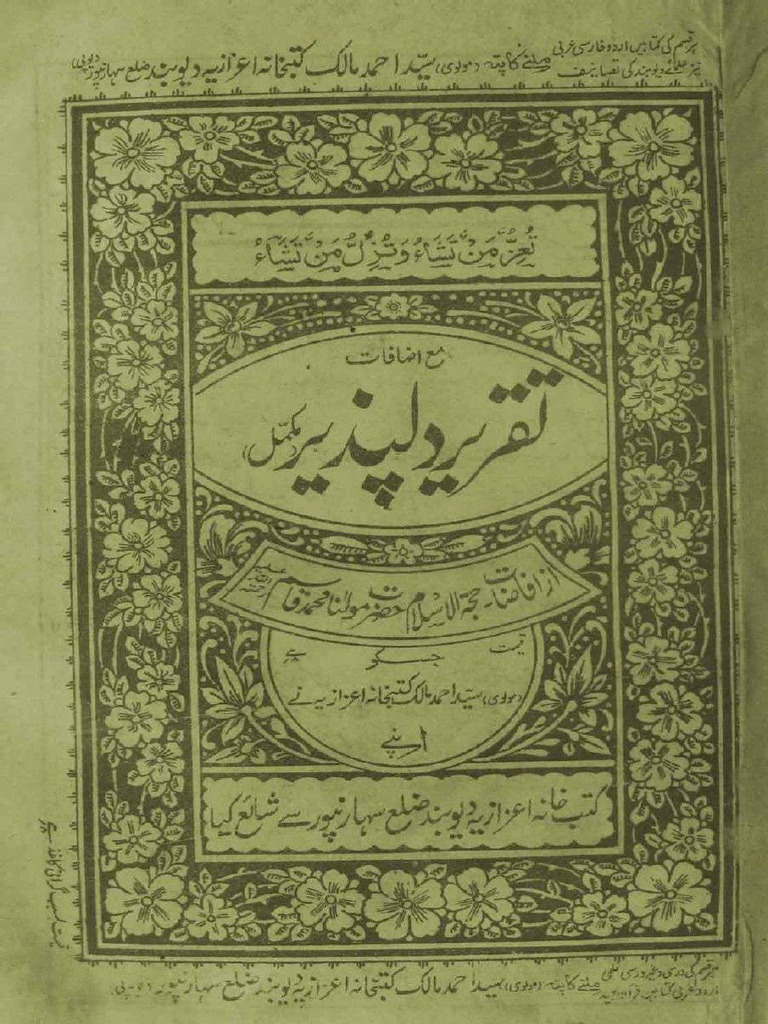 ہر قسم کی کتابیں اردو فارسی عربی
نیز علمائے دیوبند کی تصانیف
ملنے کا پتہ (مولوی) سید احمد مالک کتبخانہ اعزازیہ دیوبند ضلع سہارنپور (یوپی)
تُعِزُّ مَنْ تَشَاءُ وَتُذِلُّ مَنْ تَشَاءُ
مع اضافات
تقریر دلپذیر (مکمل)
از افاضات حجۃ الاسلام حضرت مولانا محمد قاسم
قیمت
جسکو
(مولوی) سید احمد مالک کتبخانہ اعزازیہ نے
اپنے
کتب خانہ اعزازیہ دیوبند ضلع سہارنپور سے شائع کیا
ہر قسم کی درسی و غیر درسی علمی
ملنے کا پتہ (مولوی) سید احمد مالک کتبخانہ اعزازیہ دیوبند ضلع سہارنپور (یوپی)